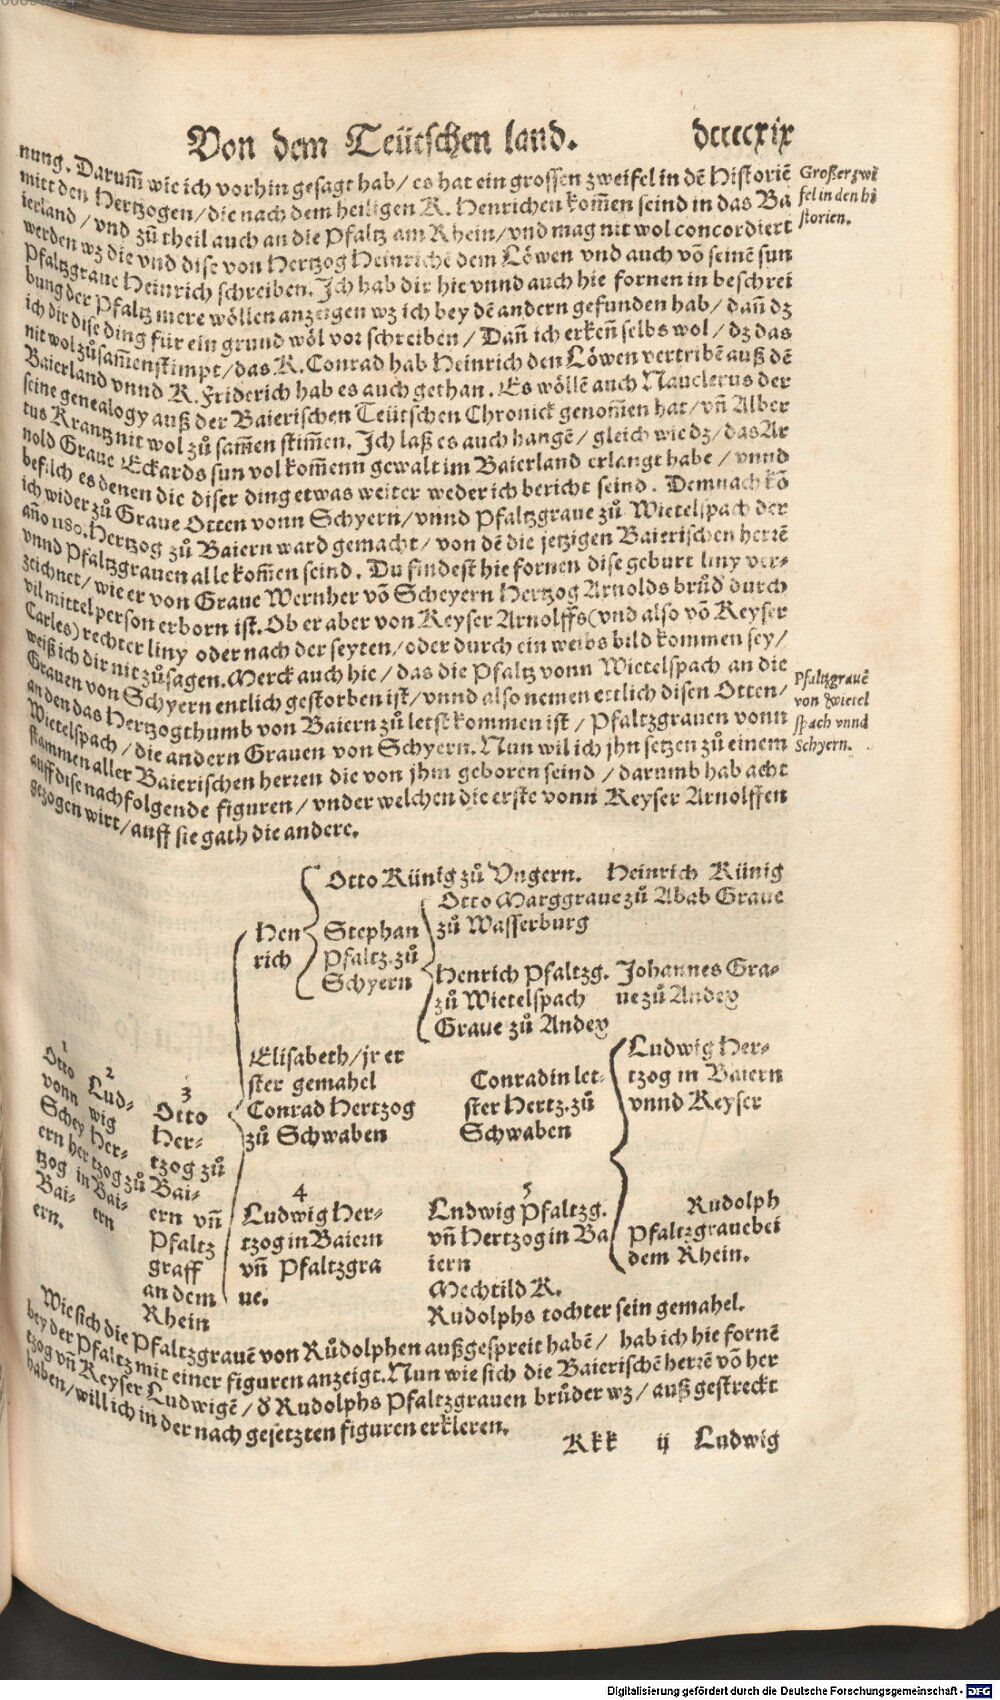 Von dem Teütschen land. dccccxix
nung. Darum̃ wie ich vorhin gesagt hab/ es hat ein grossen zweifel in dẽ Historiẽ
mitt den Hertzogen/ die nach dem heiligen K. Henrichen kom̃en seind in das Ba
ierland/ vnd zů theil auch an die Pfaltz am Rhein/ vnd mag nit wol concordiert
werden wz die vnd dise von Hertzog Heinrichẽ dem Löwen vnd auch võ seinẽ sun
Pfaltzgraue Heinrich schreiben. Ich hab dir hie vnnd auch hie fornen in beschrei
bung der Pfaltz mere wöllen anzeigen wz ich bey dẽ andern gefunden hab/ dañ dz
ich dir dise ding für ein grund wöl vor schreiben/ Dañ ich erkeñ selbs wol/ dz das
nit wol zůsam̃enstimpt/ das K. Conrad hab Heinrich den Löwen vertribẽ auß dẽ
Baierland vnnd K. Friderich hab es auch gethan. Es wöllẽ auch Nauclerus der
seine genealogy auß der Baierischen Teütschen Chronick genom̃en hat/ vñ Alber
tus Krantz nit wol zů sam̃en stim̃en. Ich laß es auch hangẽ/ gleich wie dz/ das Ar
nold Graue Eckards sun volkom̃enn gewalt im Baierland erlangt habe/ vnnd
befilch es denen die diser ding etwas weiter weder ich bericht seind. Demnach kõ
ich wider zů Graue Otten vonn Schyern/ vnnd Pfaltzgraue zů Wietelspach der
año 1180. Hertzog zů Baiern ward gemacht/ von dẽ die jetzigen Baierischen herrẽ
vnnd Pfaltzgrauen alle kom̃en seind. Du findest hie fornen dise geburt liny ver-
zeichnet/ wie er von Graue Wernher võ Scheyern Hertzog Arnolds brůd' durch
vil mittel person erborn ist. Ob er aber von Keyser Arnolffs (vnd also võ Keyser
Carles) rechter liny oder nach der seyten/ oder durch ein weibs bild kommen sey/
weiß ich dir nit zůsagen. Merck auch hie/ das die Pfaltz vonn Wietelspach an die
Grauen von Schyern entlich gestorben ist/ vnnd also nemen ettlich disen Otten/
an den das Hertzogthumb von Baiern zů letst kommen ist/ Pfaltzgrauen vonn
Wietelspach/ die andern Grauen von Schyern. Nun wil ich jhn setzen zů einem
stammen aller Baierischen herren die von jhm geboren seind/ darumb hab acht
auff dise nachfolgende figuren/ vnder welchen die erste vonn Keyser Arnolffen
gezogen wirt/ auff sie gath die andere.
Großer zwi
fel in den hi
storien.
Pfaltzgrauẽ
von Wietel
spach vnnd
Schyern.
Otto Künig zů Vngern. Heinrich Künig
Otto Marggraue zů Abab Graue
zů Wasserburg
Hen
rich
Stephan
Pfaltz. zů
Schyern
Henrich Pfaltzg.
zů Wietelspach
Graue zů Andex
Johannes Gra-
ue zů Andex
Elisabeth/ jr er
ster gemahel
Conrad Hertzog
zů Schwaben
Conradin let-
ster Hertz. zů
Schwaben
Ludwig Her-
tzog in Baiern
vnnd Keyser
1
Otto
vonn
Schey
ern her
tzog in
Bai-
ern.
2
Lud-
wig
Her-
tzog zů
Bai-
ern
3
Otto
Her-
tzog zů
Bai-
ern vñ
Pfaltz
graff
an dem
Rhein
4
Ludwig Her-
tzog in Baiern
vñ Pfaltzgra
ue.
5
Lndwig Pfaltzg.
vñ Hertzog in Ba
iern
Mechtild K.
Rudolphs tochter sein gemahel.
Rudolph
Pfaltzgraue bei
dem Rhein.
Wie sich die Pfaltzgrauẽ von Růdolphen außgespreit habẽ/ hab ich hie fornẽ
bey der Pfaltz mit einer figuren anzeigt. Nun wie sich die Baierischẽ herrẽ võ her
tzog vñ Keyser Ludwigẽ/ d' Rudolphs Pfaltzgrauen brůder wz/ auß gestreckt
haben/ will ich in der nach gesetzten figuren erkleren.
Kkk ij Ludwig
Digitalisierung gefördert durch die Deutsche Forschungsgemeinschaft - DFG